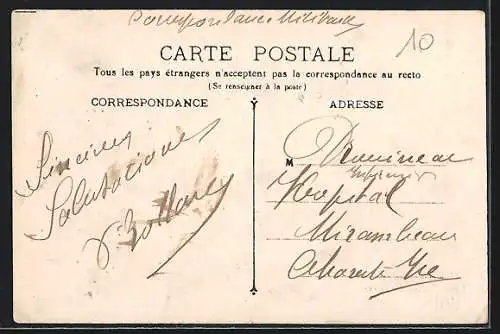 Correspondance Militaire
10
CARTE POSTALE
Tous les pays étrangers n'acceptent pas la correspondance au recto
(Se renseigner à la poste)
CORRESPONDANCE
ADRESSE
Sincères
Salutations
M
Hopital
Mirambeau
Charente Inf